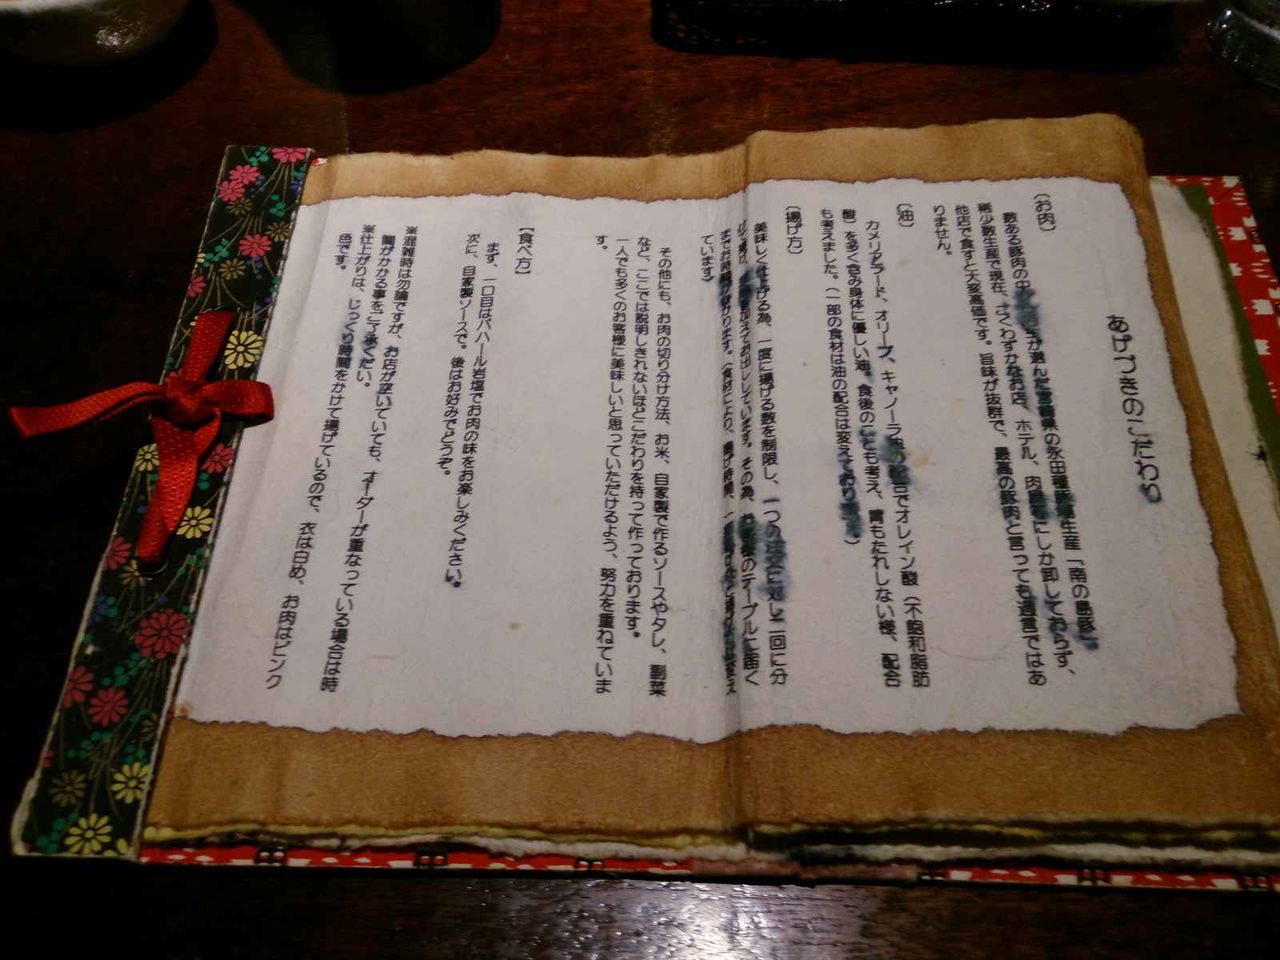 あげづきのこだわり
〔お肉〕
数ある豚肉の中 が選んだ宮崎県の永田種豚場生産「南の島豚」
稀少数生産で現在、ごくわずかなお店、ホテル、肉屋にしか卸しておらず、
他店で食すと大変高価です。旨味が抜群で、最高の豚肉と言っても過言ではあ
りません。
〔油〕
カメリアラード、オリーブ、キャノーラ油の配合でオレイン酸（不飽和脂肪
酸）を多く含み身体に優しい油。食後のことも考え、胃もたれしない様、配合
も考えました。（一部の食材は油の配合は変えております。）
〔揚げ方〕
美味しく仕上げる為、一度に揚げる数を制限し、一つの 対し二回に分
お出ししています。その為、お客様のテーブルに届く
までお時間 かります。（食材により、揚げ時間、 変え
ています）
その他にも、お肉の切り分け方法、お米、自家製で作るソースやタレ、副菜
など、ここでは説明しきれないほどこだわりを持って作っております。
一人でも多くのお客様に美味しいと思っていただけるよう、努力を重ねていま
す。
【食べ方】
まず、一口目はパハール岩塩でお肉の味をお楽しみください。
次に、自家製ソースで。後はお好みでどうぞ。
※混雑時は勿論ですが、お店が空いていても、オーダーが重なっている場合は時
間がかかる事をご了承ください。
※仕上がりは、じっくり時間をかけて揚げているので、衣は白め、お肉はピンク
色です。